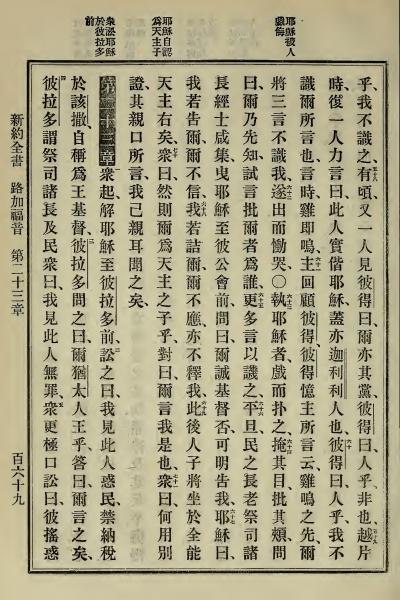 耶穌被人
戲侮
耶穌自認
為天主子
衆訟耶穌
於彼拉多
前
乎、我不識之、有頃、又一人見彼得曰、爾亦其黨、彼得曰、人乎、非也、越片
時、復一人力言曰、此人實偕耶穌、蓋亦迦利利人也、彼得曰、人乎、我不
識爾所言也、言時、雞即鳴、主回顧彼得、彼得憶主所言云、雞鳴之先、爾
將三言不識我、遂出而慟哭、〇執耶穌者、戲而扑之、掩其目、批其頰、問
曰、爾乃先知、試言批爾者爲誰、更多言以譏之、平旦、民之長老、祭司諸
長、經士咸集、曳耶穌至彼公會前、問曰、爾誠基督否、可明告我、耶穌曰、
我若告爾、爾不信、我若詰爾、爾不應、亦不釋我、此後人子將坐於全能
天主右矣、衆曰、然則爾爲天主之子乎、對曰、爾言我是也、衆曰、何用別
證、其親口所言、我己親耳聞之矣、
第二十三章 衆起、解耶穌至彼拉多前、訟之曰、我見此人惑民、禁納稅
於該撒、自稱爲王基督、彼拉多問之曰、爾猶太人王乎、答曰、爾言之矣、
彼拉多謂祭司諸長及民衆曰、我見此人無罪、衆更極口訟曰、彼搖惑
新約全書 路加福音 第二十三章 百六十九